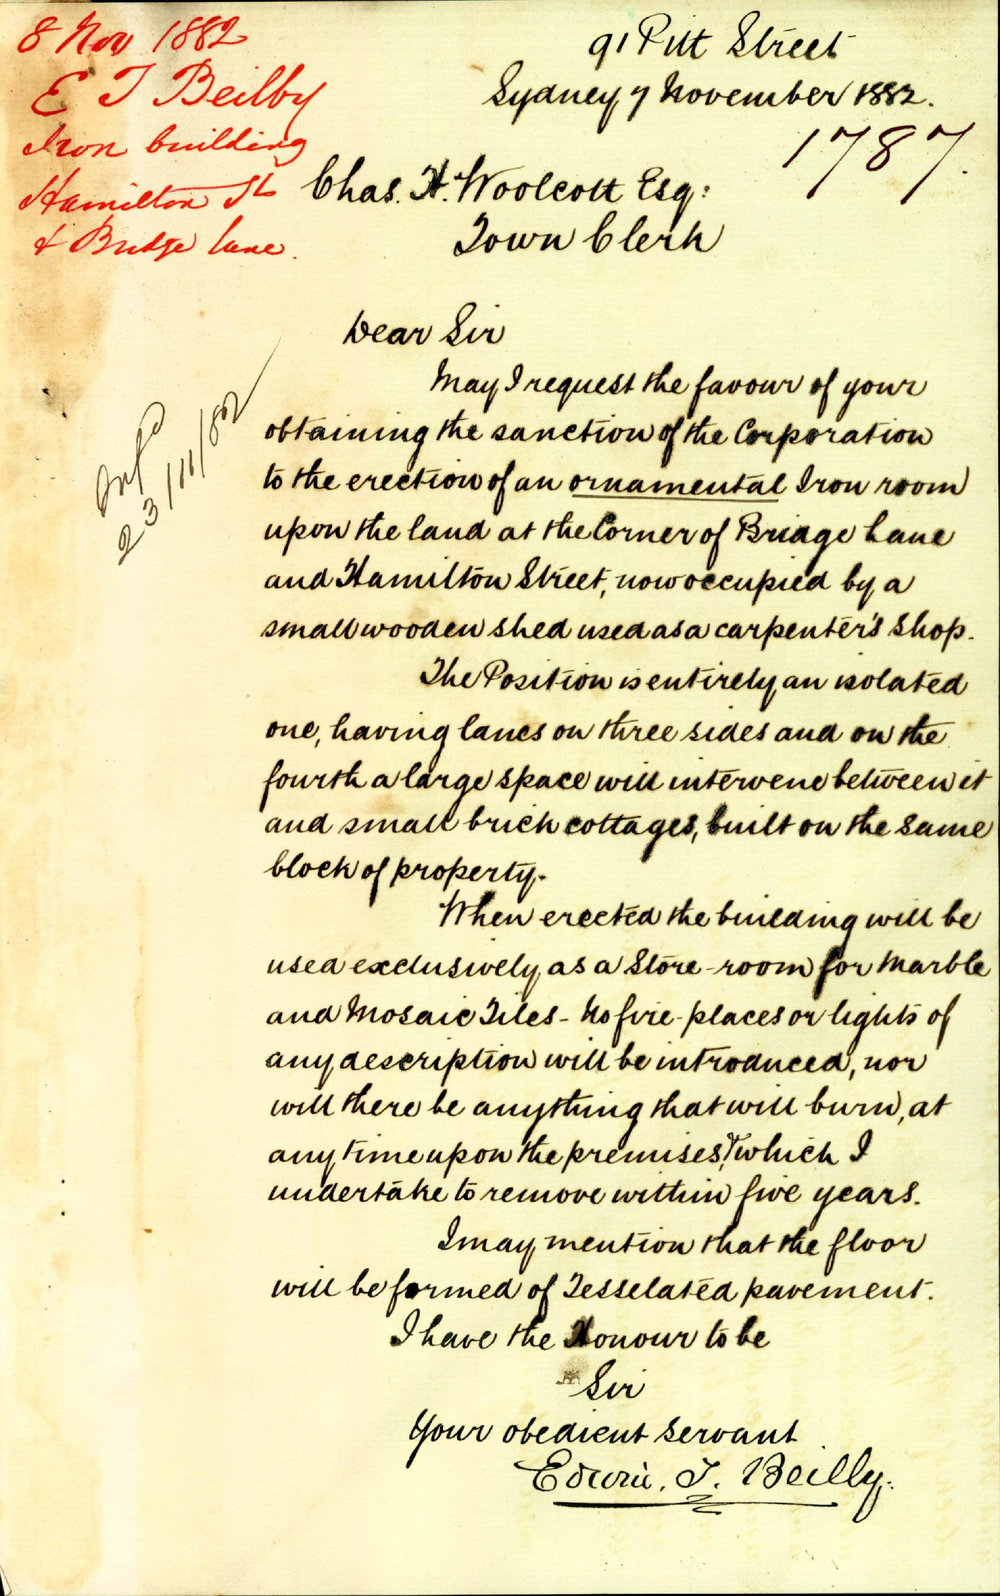 8 Nov 1882
E T Beilby
Iron building
Hamilton St
& Bridge Lane.
91 Pitt Street
Sydney 7 November 1882.
1787.
Chas. H. Woolcott Esq:
Town Clerk
Dear Sir
May I request the favour of your
obtaining the sanction of the Corporation
to the erection of an ornamental Iron room
upon the land at the Corner of Bridge Lane
and Hamilton Street, now occupied by a
small wooden shed used as a carpenter's shop.
The Position is entirely an isolated
one, having lanes on three sides and on the
fourth a large space will intervene between it
and small brick cottages, built on the same
block of property.
When erected the building will be
used exclusively as a Store-room for Marble
and Mosaic Tiles - No fire-places or lights of
any description will be introduced, nor
will there be anything that will burn, at
any time upon the premises, which I
undertake to remove within five years.
I may mention that the floor
will be formed of Tesselated pavement.
I have the Honour to be
Sir
Your obedient servant
Edwin. T. Beilby.
23/11/82